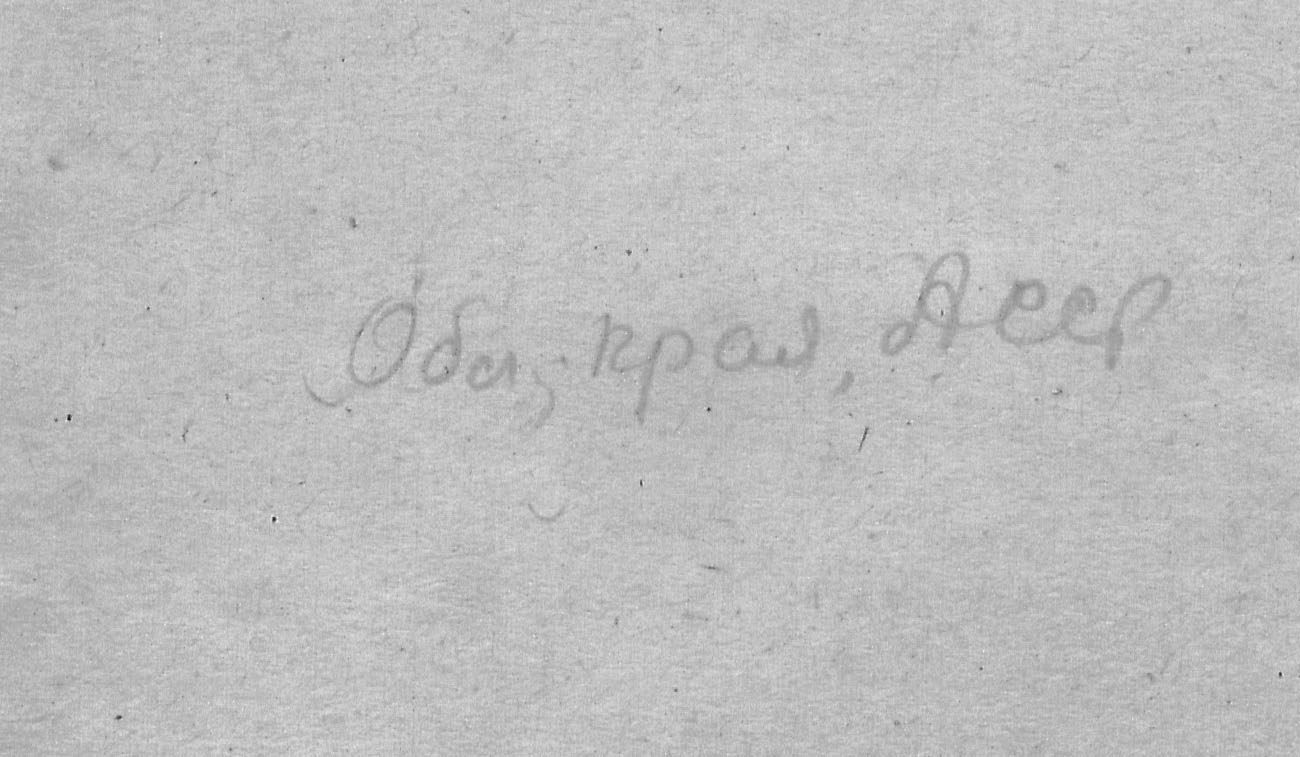 Обл, края, Асср